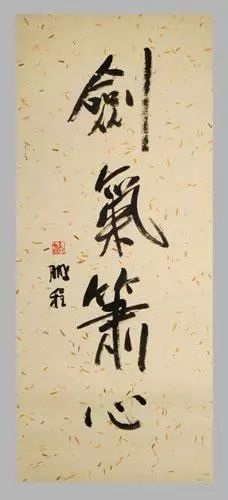 劍氣簫心
鵬程